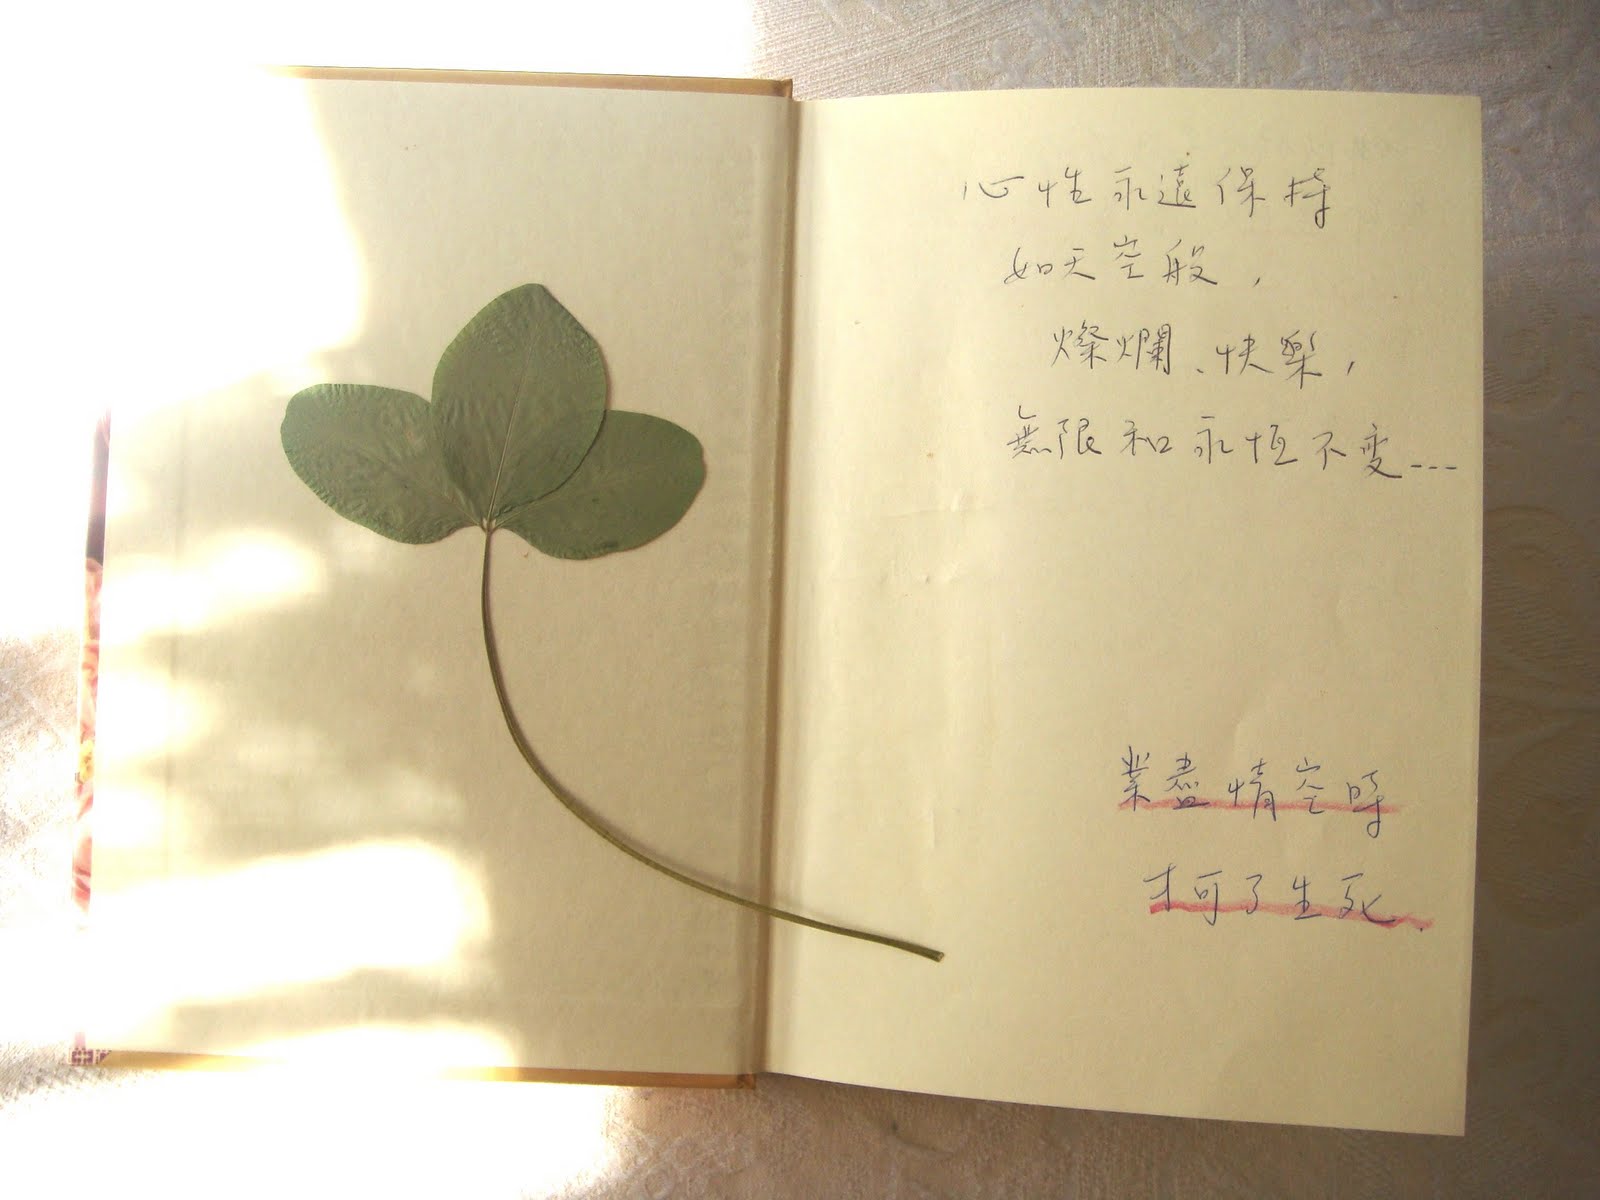 心性永遠保持
如天空般，
燦爛、快樂，
無限和永恆不變---
業盡情空時
才可了生死.